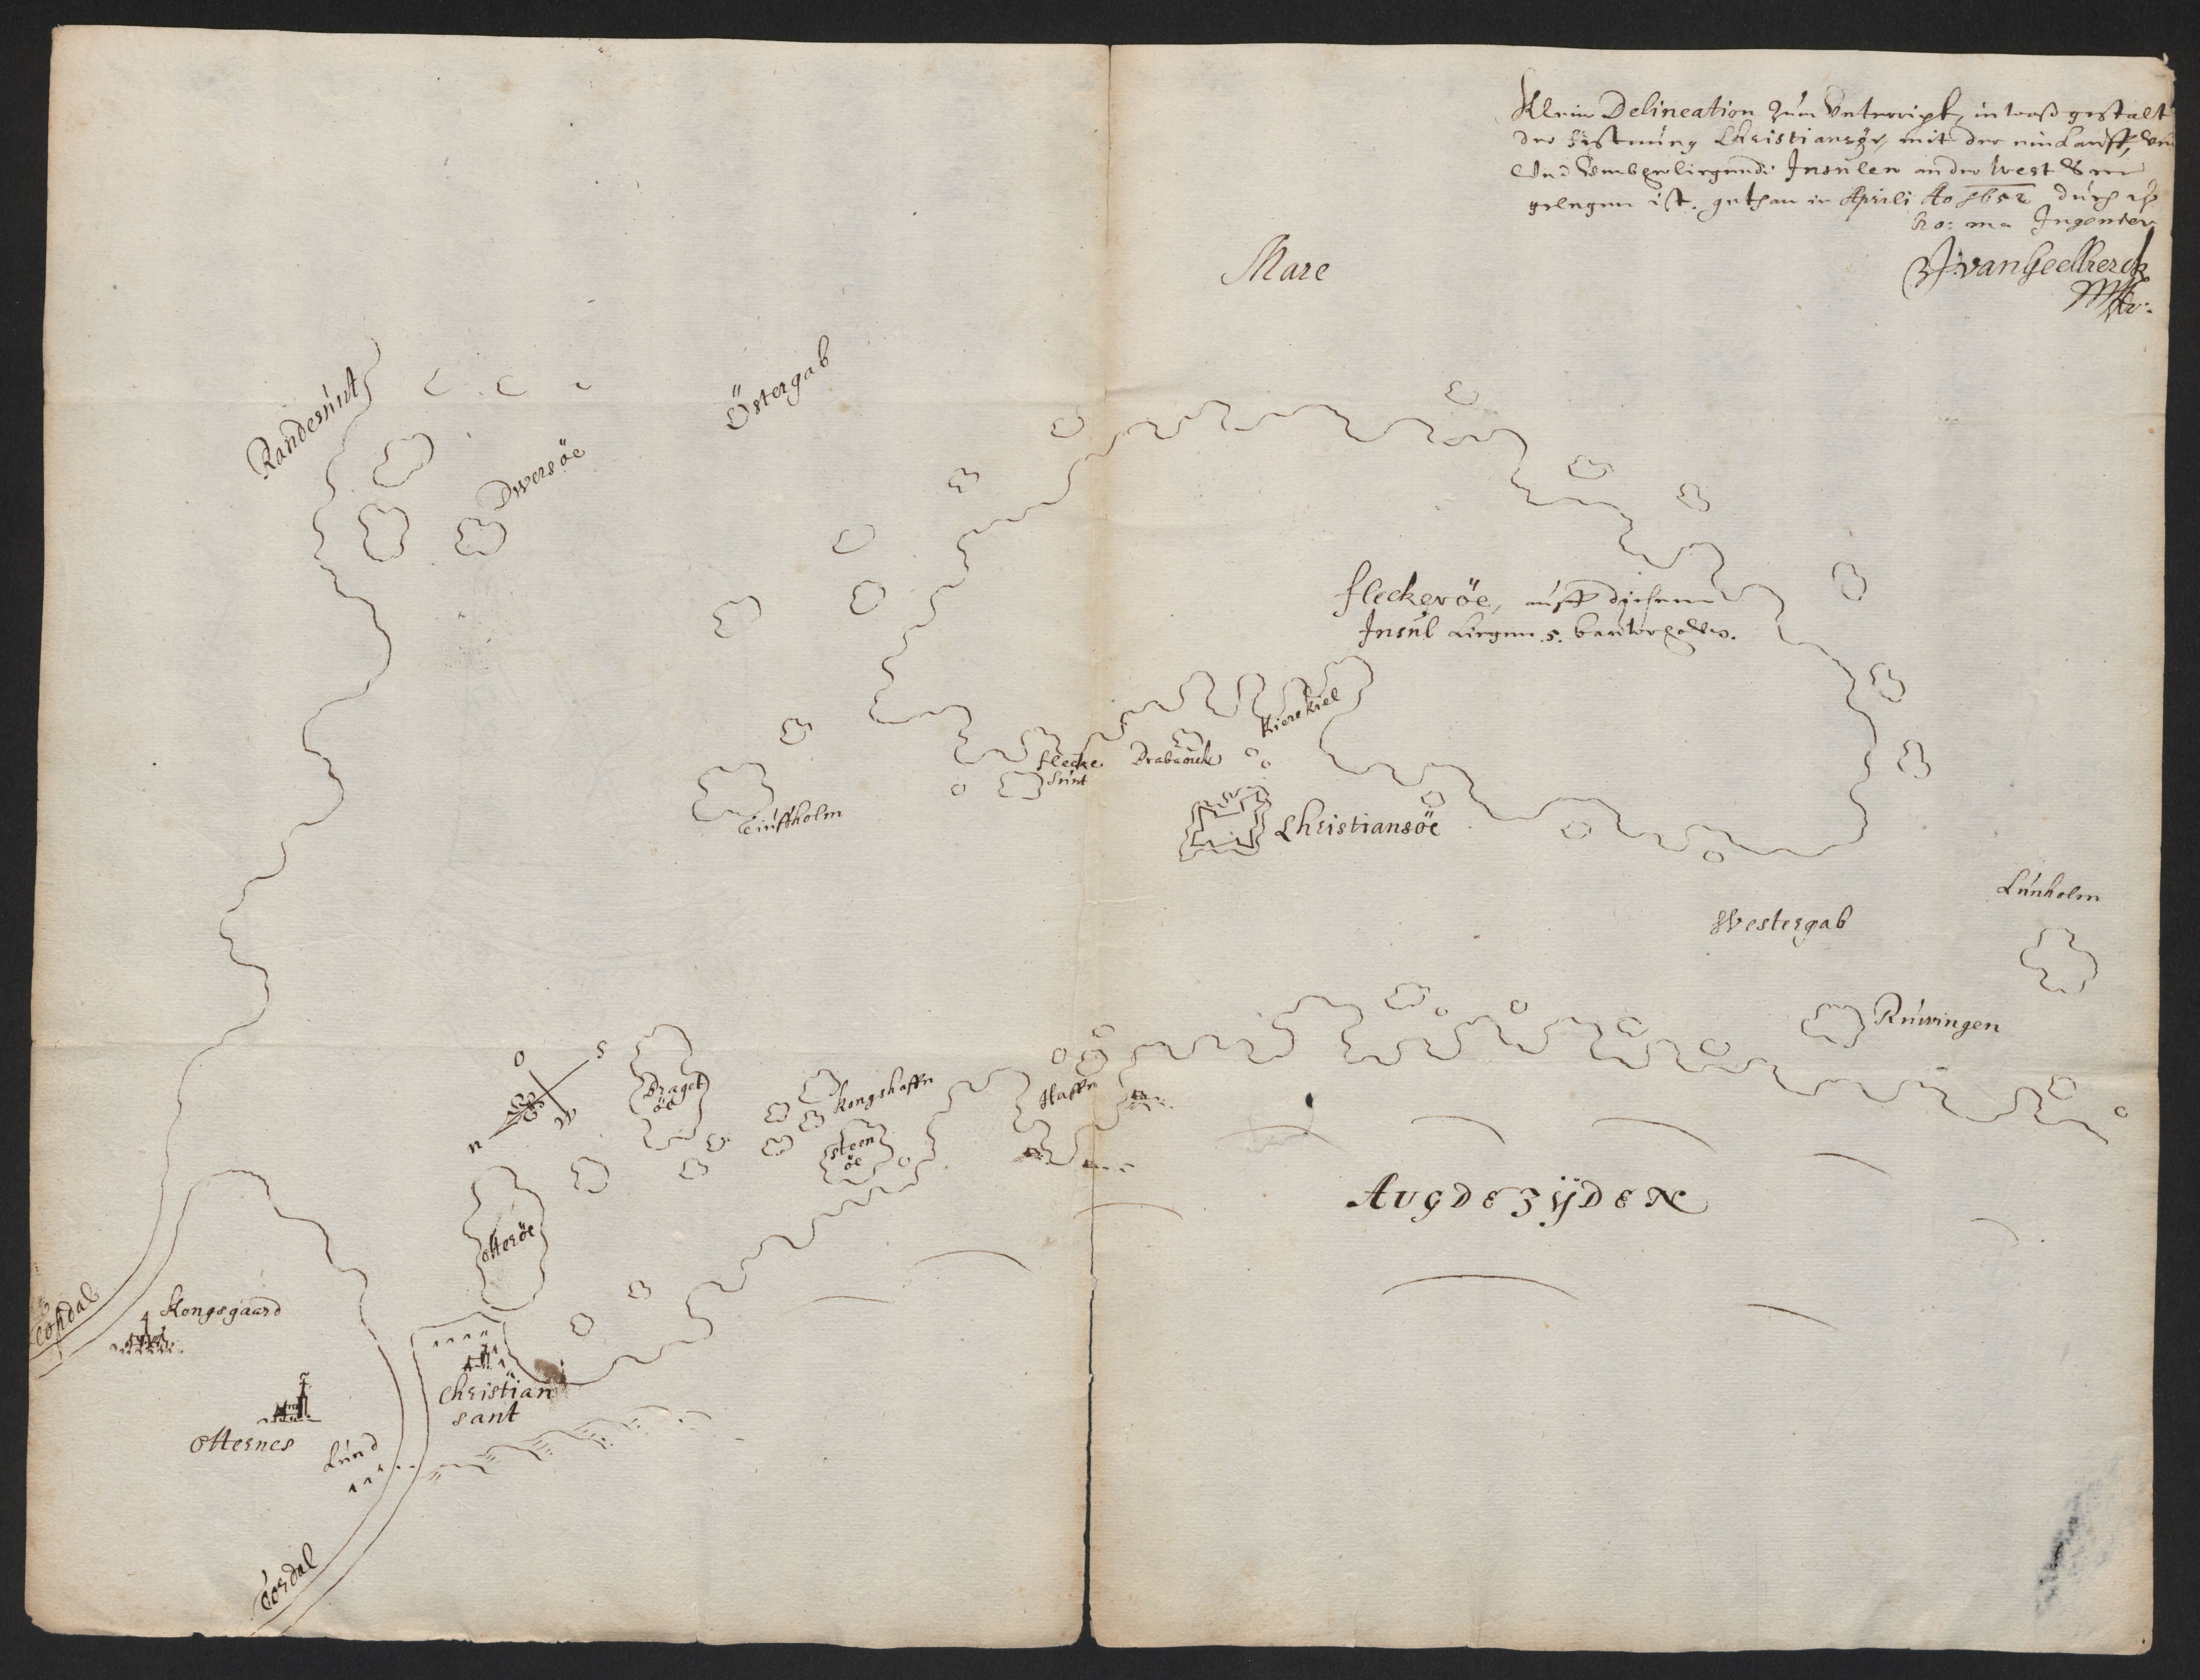 Klein Delineation zum Unterricht, in waß gestalt
der Vestnung Christiansöe, mit der einlauff, Und
Und Umbherliegende Insulen an der West See
gelegen ist. gethan in Aprili Ao 1652 durch
Ko: ma Ingenier
van Geelkerck
Mare
Östergab
Randesunt
Dwersöe
fleckeröe, auff diesem
Insul Liegen 5. baur
Kierekiel
flecke
Sunt
Drabanck
holm
Christiansöe
Lunholm
Westergab
Ruwingen
O
S
W
N
Draget
öe
Kongshaffn
Haffn
Steen
öe
AUGDEZIJDEN
Otteröe
Kongsgaard
Christian
sant
Otternes
Lund